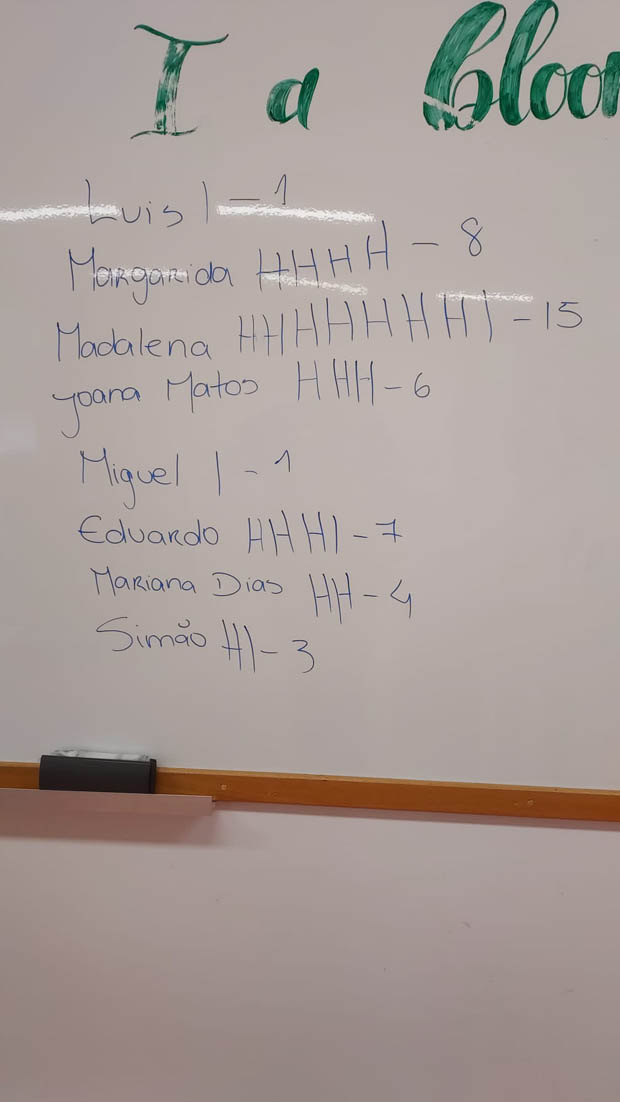 I a
Luis | - 1
Margarida HHHH - 8
Madalena HHHHHHH| - 15
Joana Matos HHH - 6
Miguel | - 1
Eduardo HHH| - 7
Mariana Dias HH - 4
Simão H| - 3